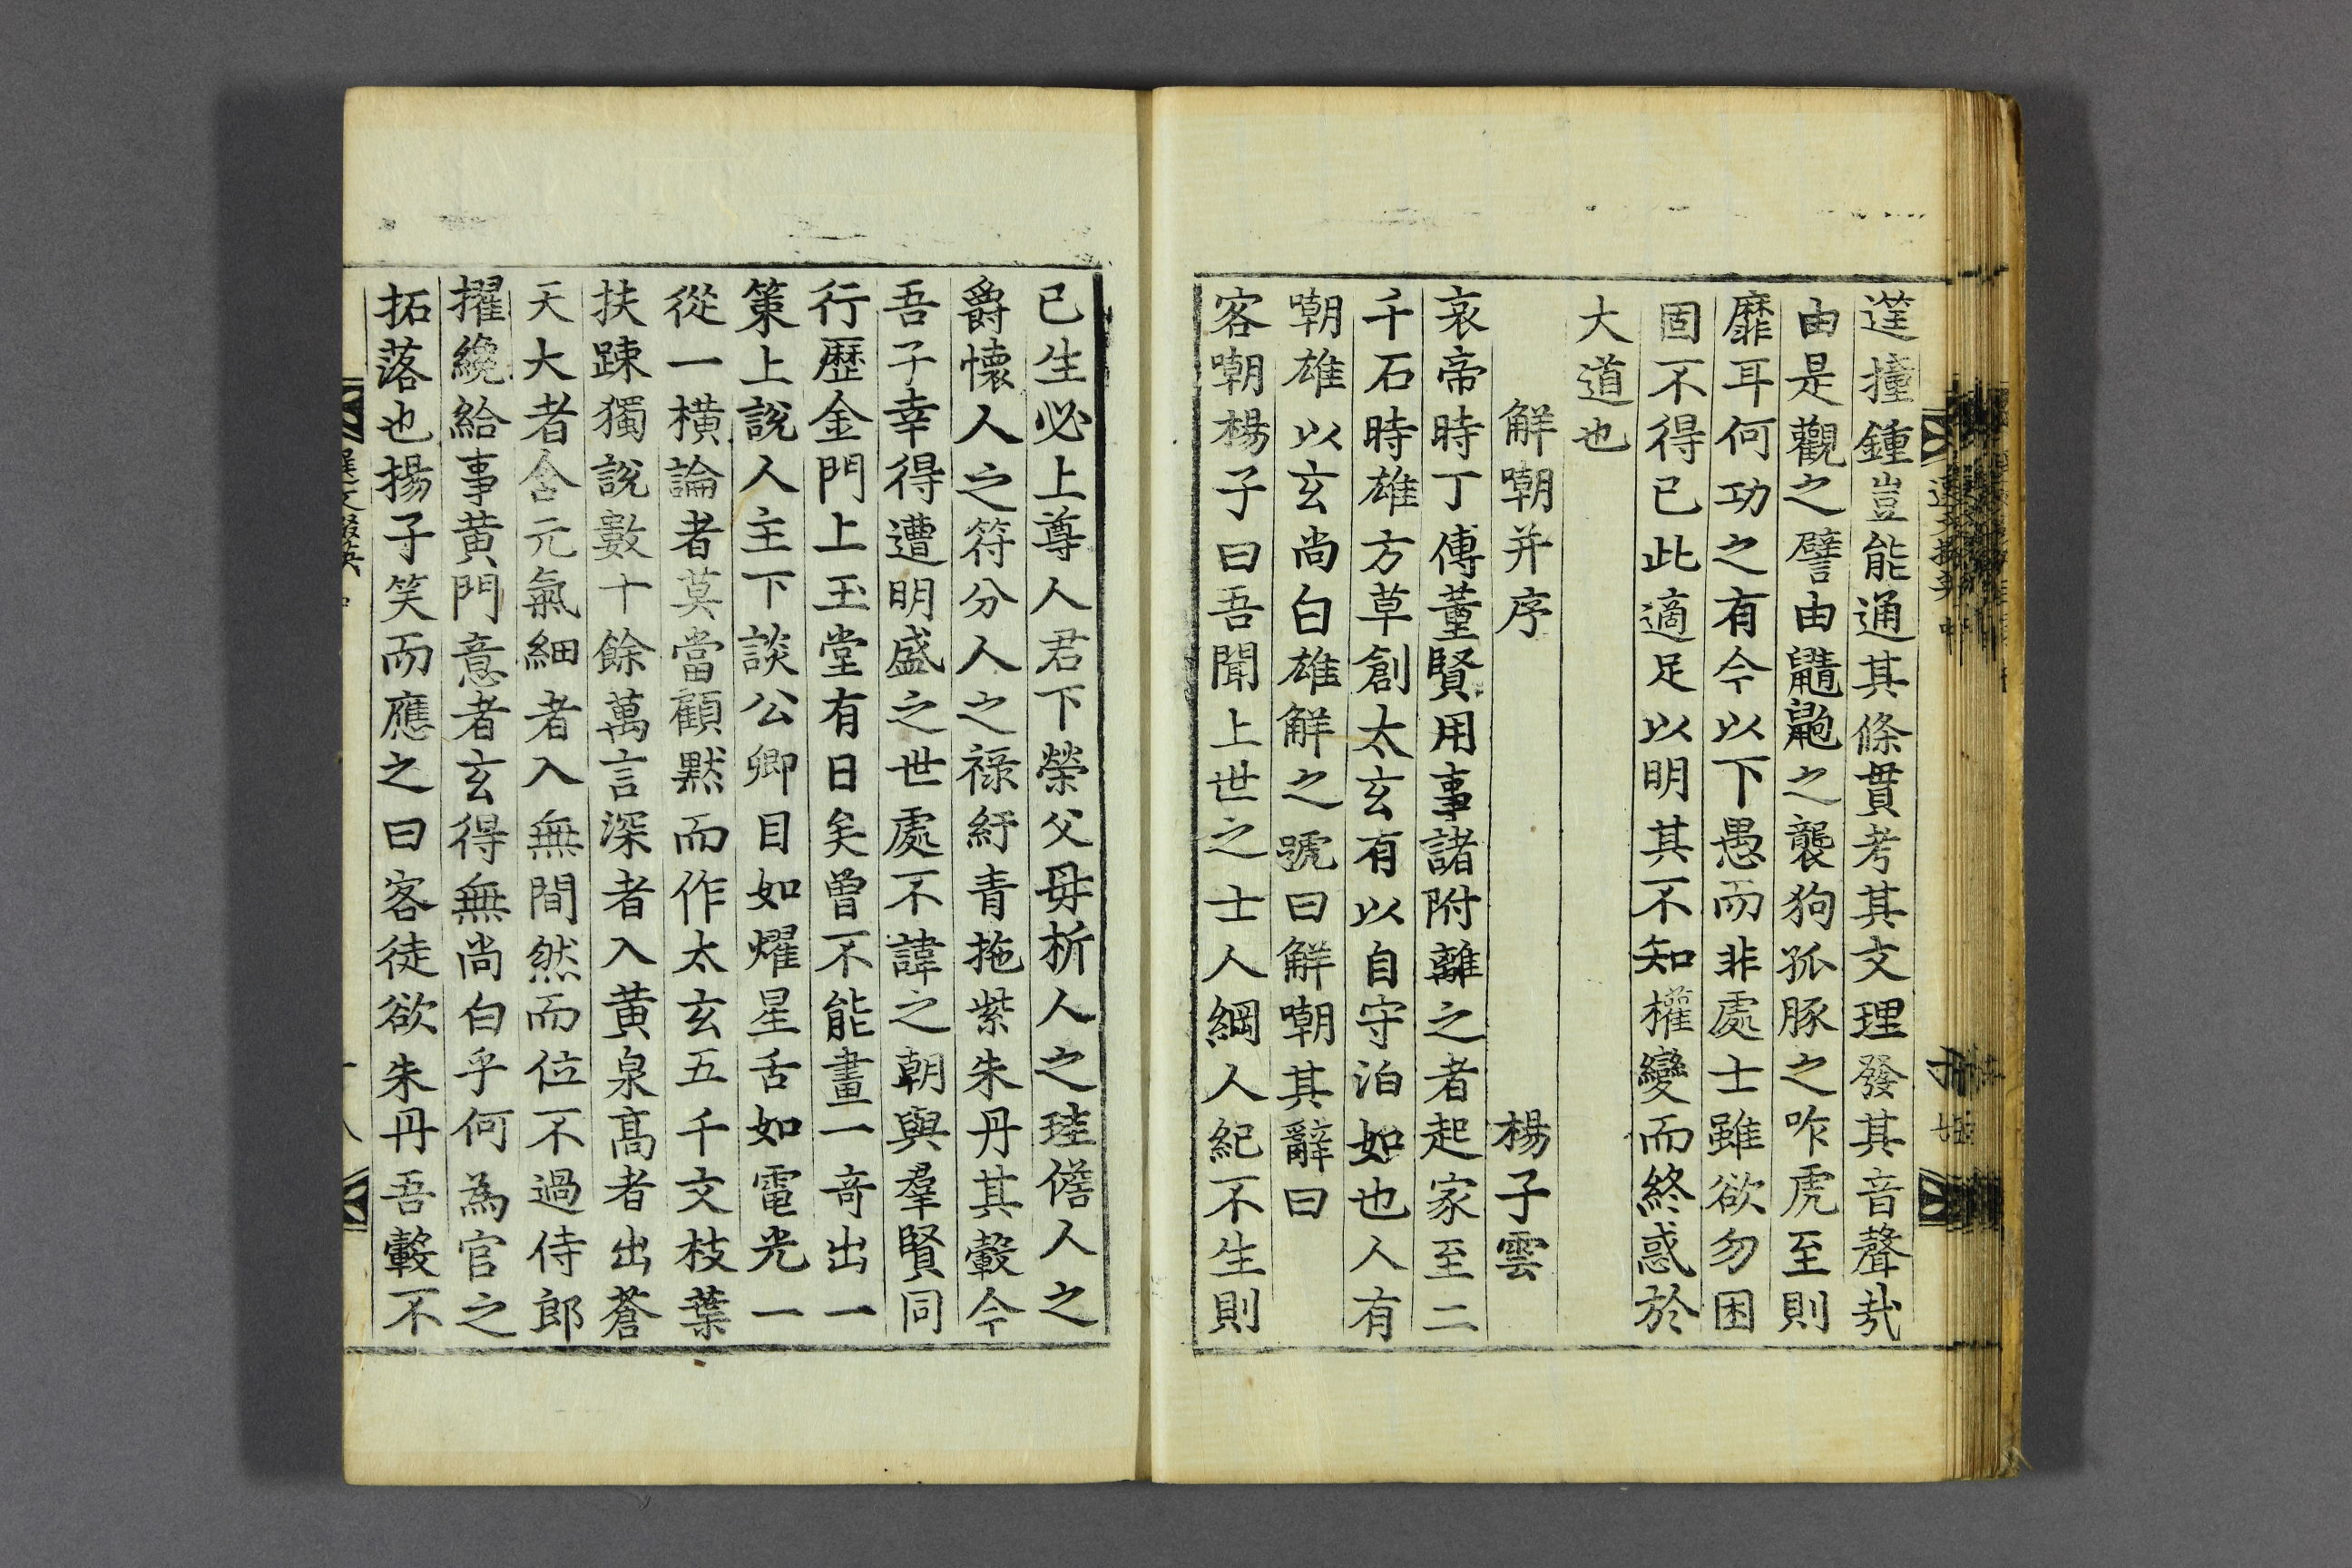 莛撞鍾豈能通其條貫考其文理發其音聲㢤
由是觀之譬由鼱鼩之襲狗孤豚之咋虎至則
靡耳何功之有今以下愚而非處士雖欲勿困
固不得已此適足以明其不知權變而終惑於
大道也
解嘲并序 楊子雲
哀帝時丁傅董賢用事諸附離之者起家至二
千石時雄方草創太玄有以自守泊如也人有
嘲雄以玄尚白雄解之號曰解嘲其辭曰
客嘲楊子曰吾聞上世之士人綱人紀不生則
已生必上尊人君下榮父毋析人之珪儋人之
爵懷人之符分人之祿紆青拖紫朱丹其轂今
吾子幸得遭明盛之世處不諱之朝與羣賢同
行歷金門上玉堂有日矣曾不能畫一奇出一
策上說人主下談公卿目如燿星舌如電光一
從一橫論者莫當顧黙而作太玄五千文枝葉
扶踈獨說數十餘萬言深者入黃泉高者出蒼
天大者含元氣細者入無間然而位不過侍郎
擢纔給事黃門意者玄得無尚白乎何為官之
拓落也揚子笑而應之曰客徒欲朱丹吾轂不